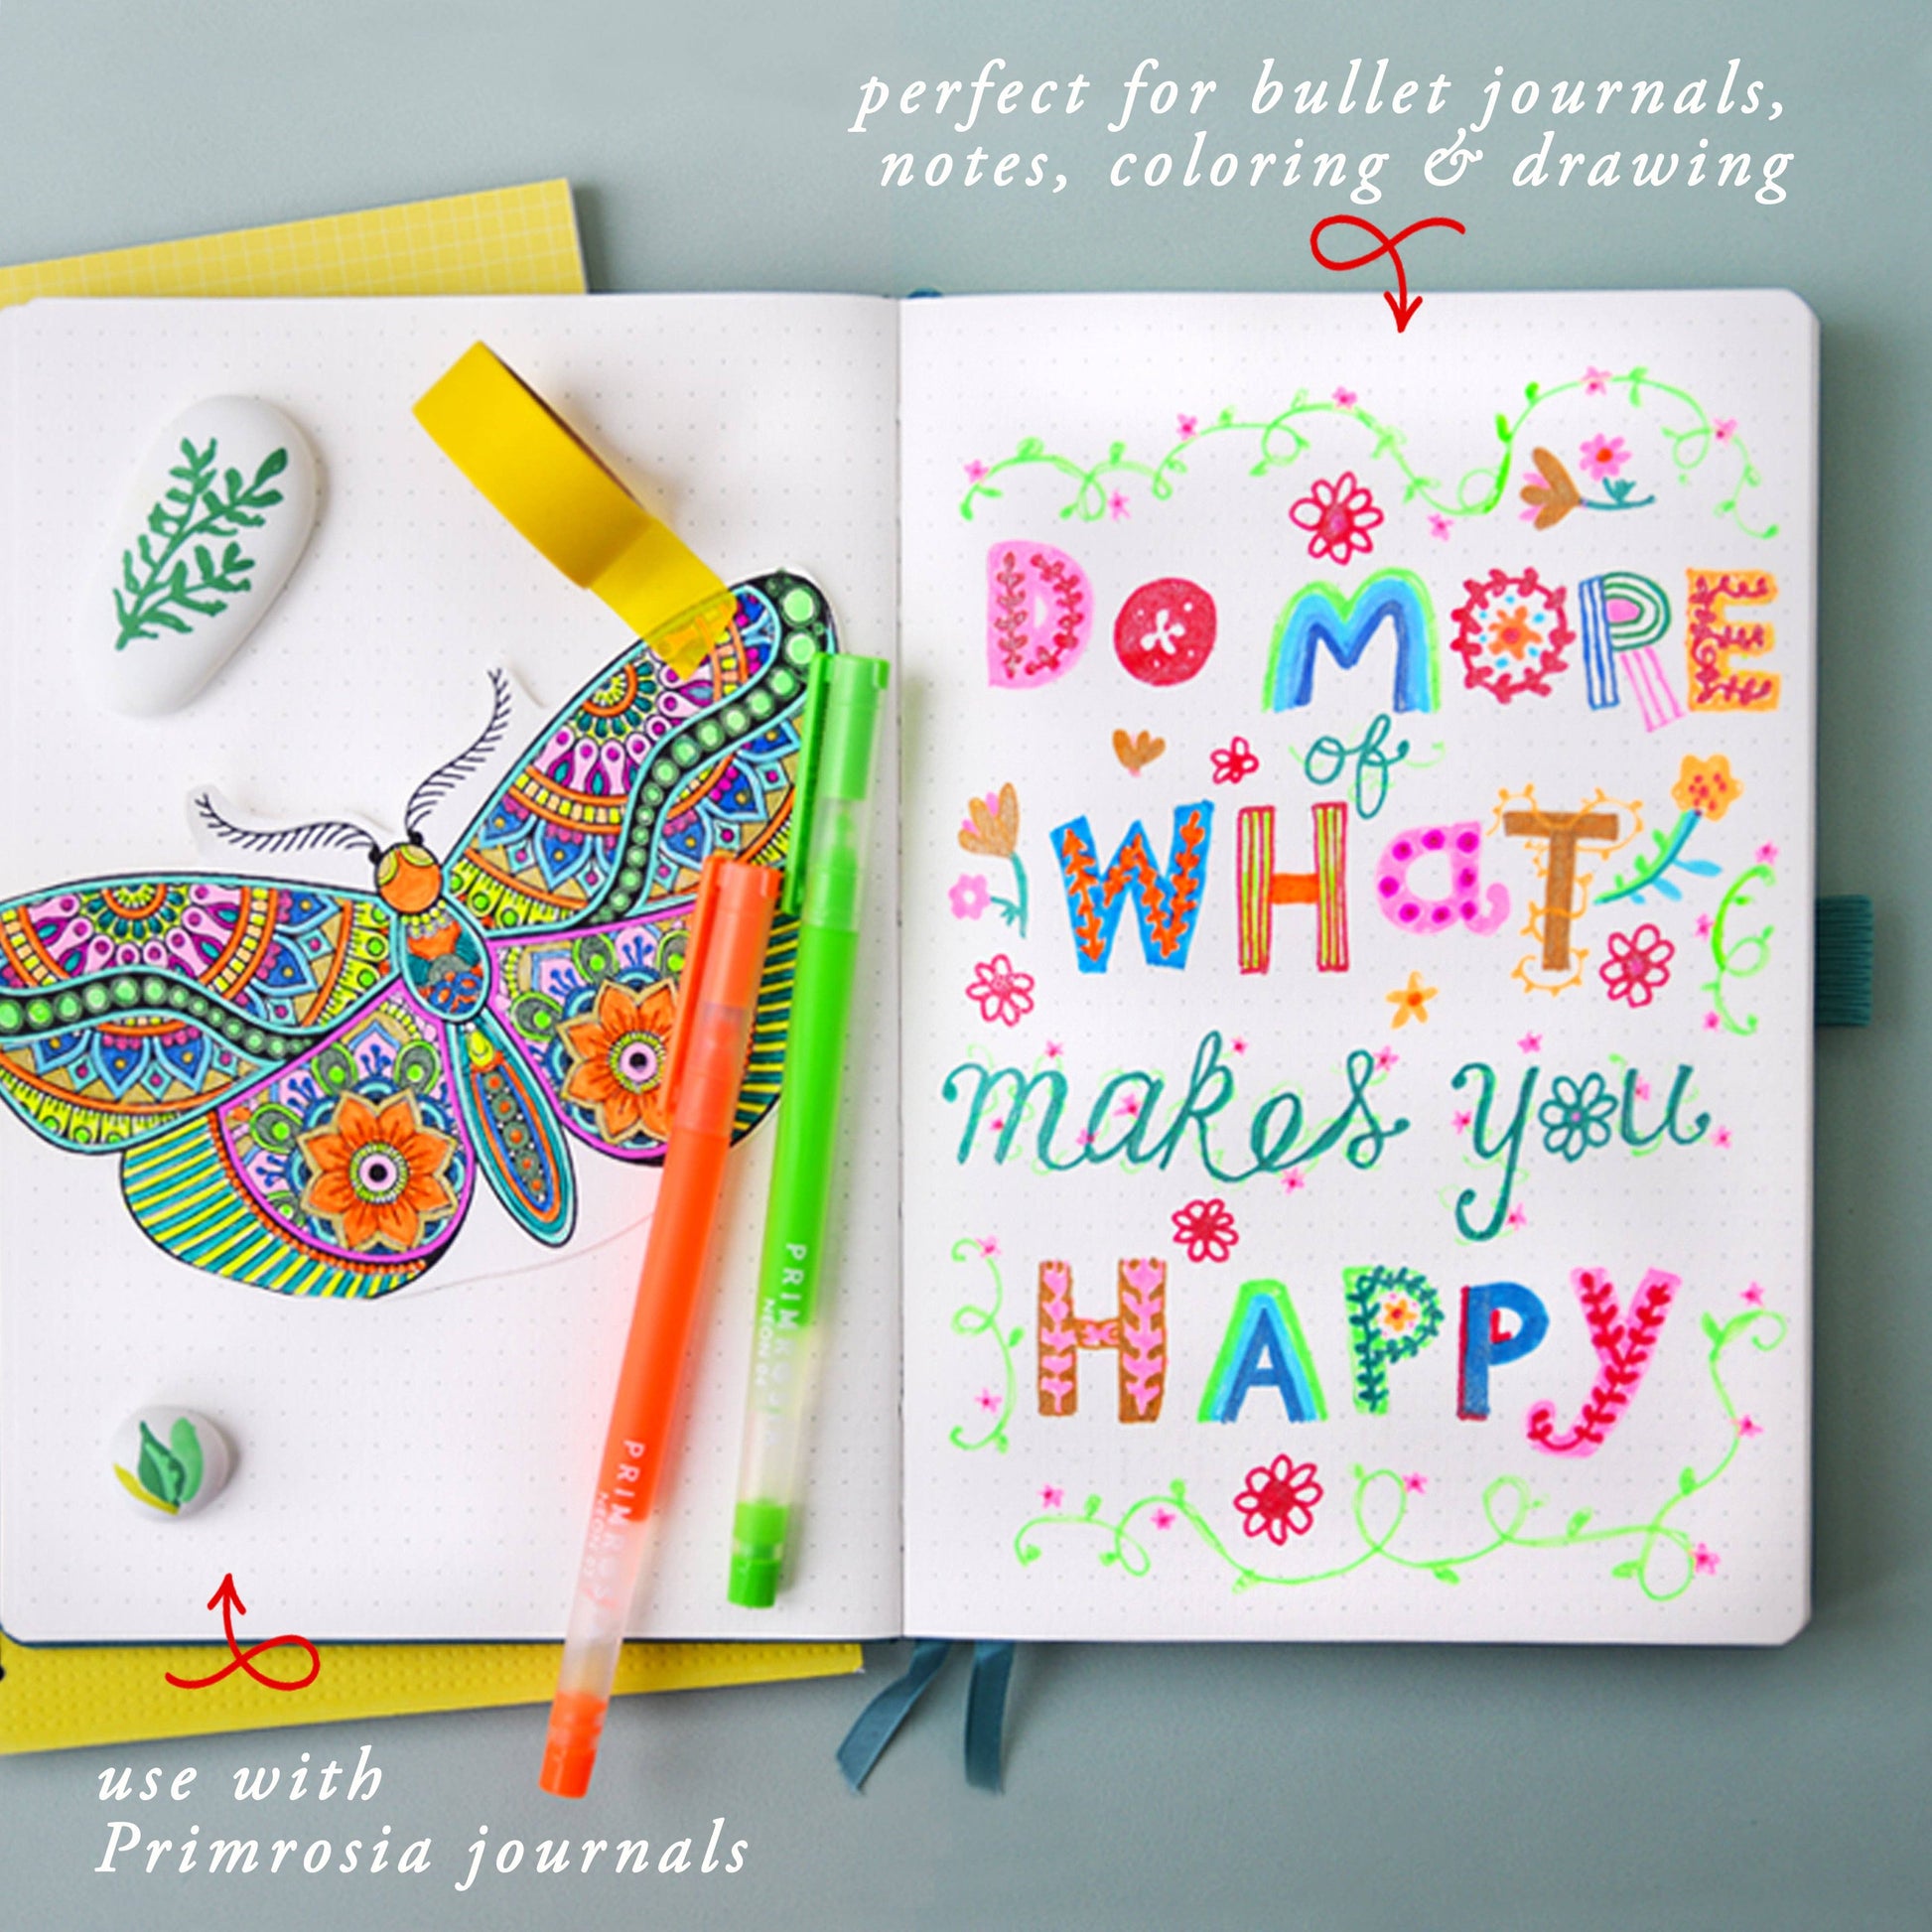 perfect for bullet journals,
notes, coloring & drawing
DO MORE
of
WHaT
makes you
HAPPY
PRIMROSIA
NEON 04
PRIMROSIA
use with
Primrosia journals